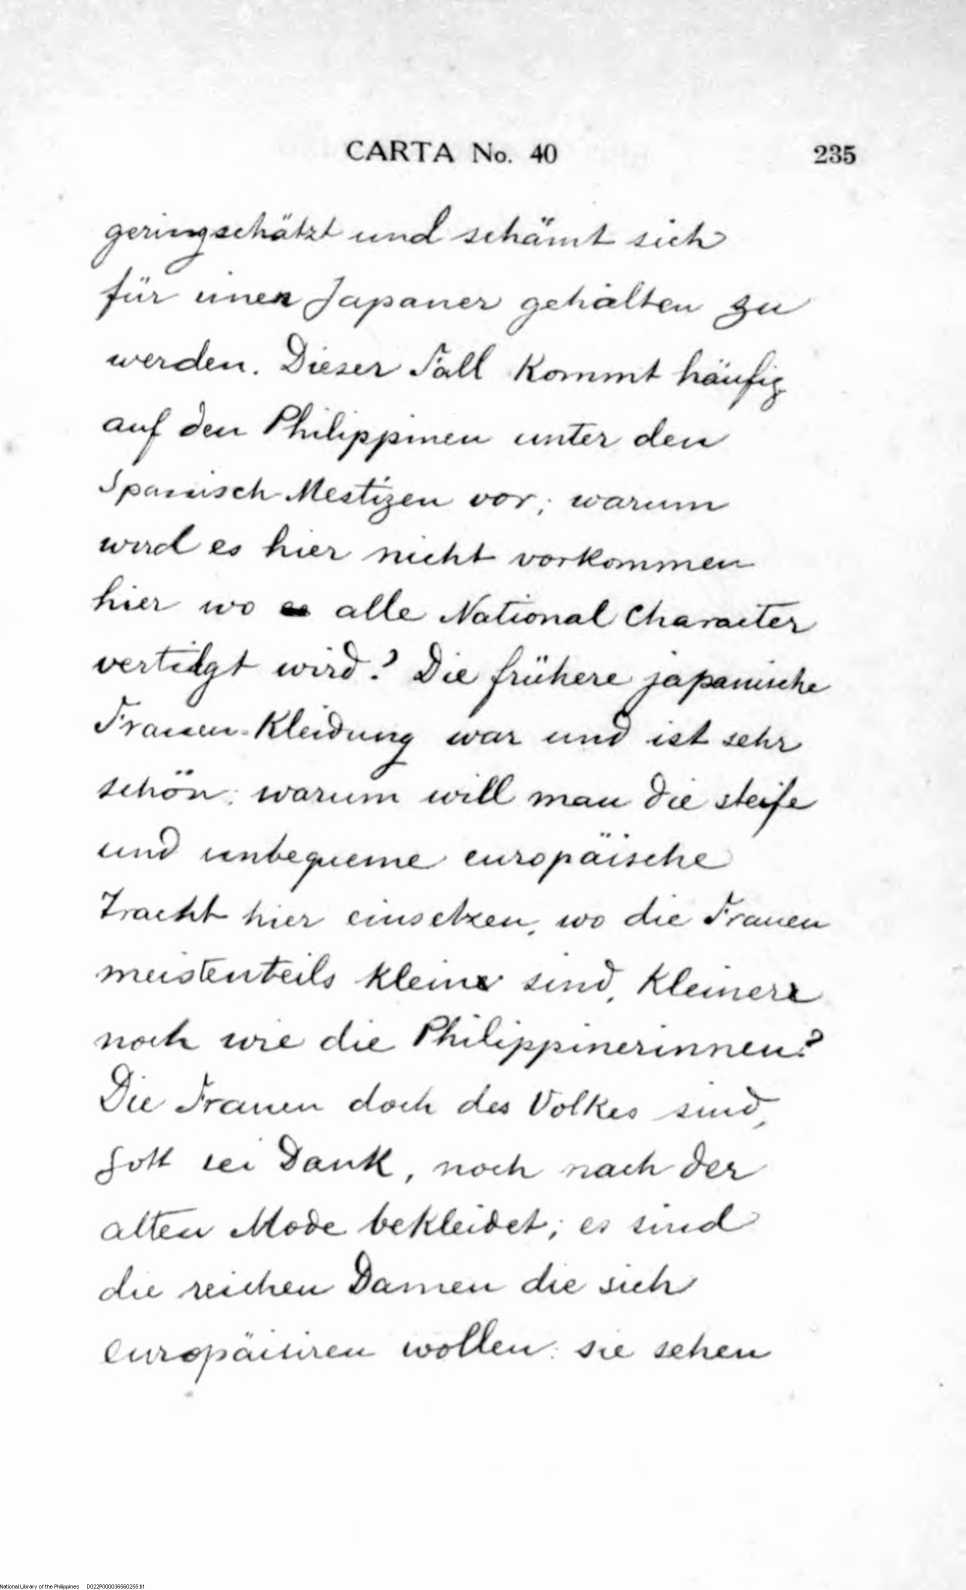 CARTA No. 40 235
geringschätzt und schämt sich
für einen Japaner gehalten zu
werden. Dieser Fall kommt häufig
auf den Philippinen unter den
Spanisch-Mestizen vor; warum
wird es hier nicht vorkommen
hier wo alle National Character
vertilgt wird? Die frühere japanische
Frauen-Kleidung war und ist sehr
schön; warum will man die steife
und unbequeme europäische
Tracht hier einsetzen, wo die Frauen
meistenteils klein sind, kleiner
noch wie die Philippinerinnen?
Die Frauen doch des Volkes sind,
Gott sei Dank, noch nach der
alten Mode bekleidet; es sind
die reichen Damen die sich
europäisiren wollen: sie sehen
National Library of the Philippines